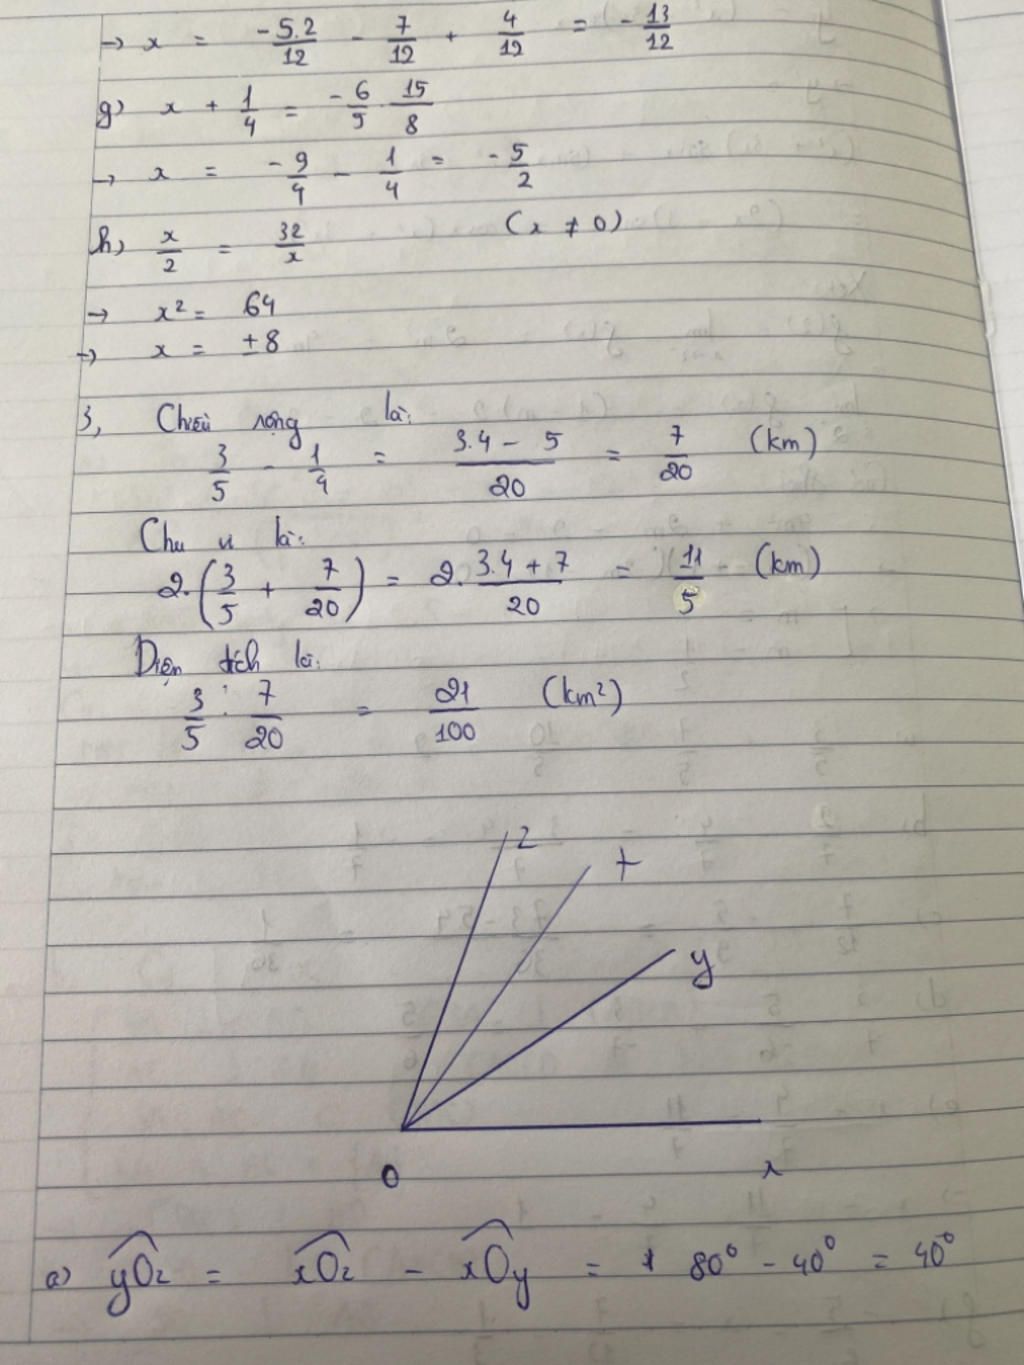 → x = -5.2/12 - 7/12 + 4/12 = -13/12
g) x + 1/4 = -6/5 · 15/8
→ x = -9/4 - 1/4 = -5/2
h) x/2 = 32/x (x ≠ 0)
→ x² = 64
→ x = ±8
3, Chiều rộng là:
3/5 - 1/4 = (3.4 - 5)/20 = 7/20 (km)
Chu vi là:
2.(3/5 + 7/20) = 2. (3.4 + 7)/20 = 11/5 (km)
Diện tích là:
3/5 . 7/20 = 21/100 (km²)
z
t
y
O x
a) yOz = xOz - xOy = 80° - 40° = 40°